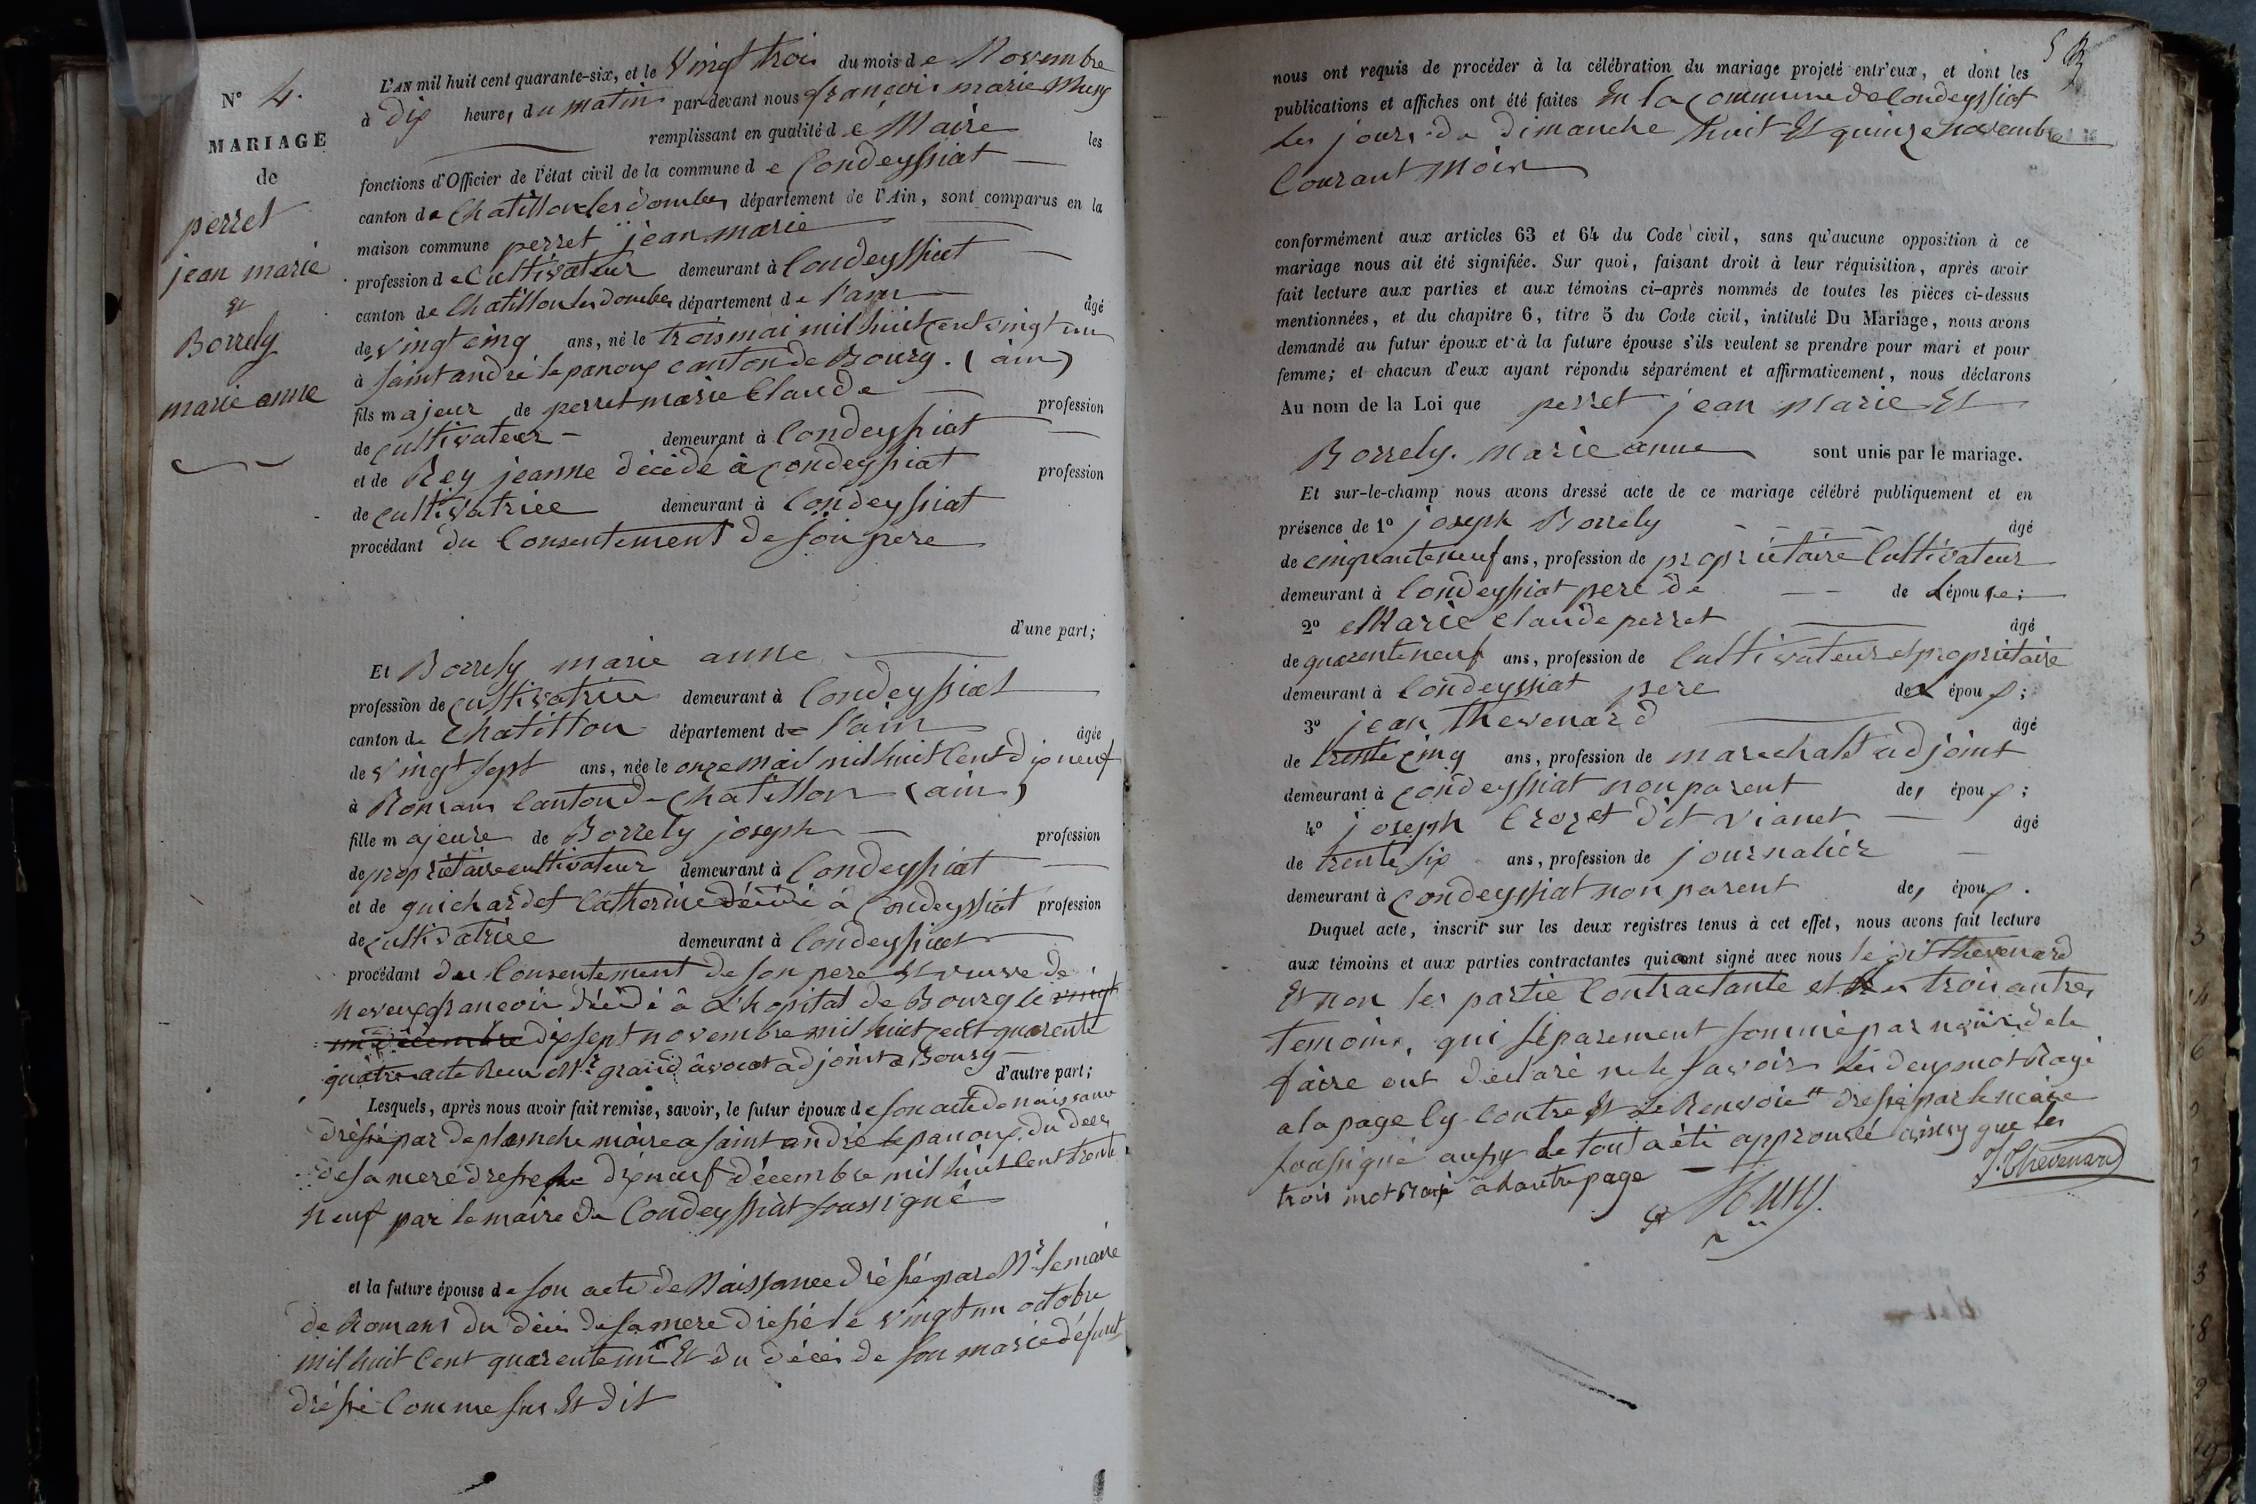 N° 4.
MARIAGE
de
perret
jean marie
et
Borrely
marie anne
L'AN mil huit cent quarante-six, et le Vingt trois du mois de Novembre
à dix heures du matin par-devant nous françois marie Muny
remplissant en qualité de Maire les
fonctions d'Officier de l'état civil de la commune de Condeyssiat
canton de Chatillon les dombes département de l'Ain, sont comparus en la
maison commune perret jean marie
profession de Cultivateur demeurant à Condeyssiat
canton de Chatillon les dombes département de l'ain âgé
de vingt cinq ans, né le trois mai mil huit cent vingt un
à saint andré le panoux canton de Bourg. (ain)
fils majeur de perret marie Claude profession
de cultivateur demeurant à Condeyssiat
et de Rey jeanne décédé à Condeyssiat profession
de cultivatrice demeurant à Condeyssiat
procédant du Consentement de son pere
d'une part;
Et Borrely marie anne
profession de cultivatrice demeurant à Condeyssiat
canton de Chatillon département de l'ain âgée
de vingt sept ans, née le onze mai mil huit Cent dix neuf
à Romans Canton de Chatillon (ain)
fille majeure de Borrely joseph profession
de propriétaire cultivateur demeurant à Condeyssiat
et de guichardet Catherine décédé à Condeyssiat profession
de cultivatrice demeurant à Condeyssiat
procédant du Consentement de son pere et veuve de
neveux françois décédé à L'hopital de Bourg le vingt
un décembre dix sept novembre mil huit cent quarente
quatre acte Recu Mr graud avocat adjoint a Bourg
d'autre part;
Lesquels, après nous avoir fait remise, savoir, le futur époux de son acte de naissance
dréssé par deplanche maire a saint andré le panoux. du deces
de sa mere dressé le dix neuf décembre mil huit Cent trente
neuf par le maire de Condeyssiat soussigné
et la future épouse de son acte de Naissance dréssé par Mr le maire
de Romans du déces de sa mere dressé le vingt un octobre
mil huit Cent quarente un Et du déces de son marie défunt
dréssé Comme sus Et dit
5
nous ont requis de procéder à la célébration du mariage projeté entr'eux, et dont les
publications et affiches ont été faites En la commune de Condeyssiat
les jours de dimanche huit Et quinze novembre
Courant Mois
conformément aux articles 63 et 64 du Code civil, sans qu'aucune opposition à ce
mariage nous ait été signifiée. Sur quoi, faisant droit à leur réquisition, après avoir
fait lecture aux parties et aux témoins ci-après nommés de toutes les pièces ci-dessus
mentionnées, et du chapitre 6, titre 5 du Code civil, intitulé Du Mariage, nous avons
demandé au futur époux et à la future épouse s'ils veulent se prendre pour mari et pour
femme; et chacun d'eux ayant répondu séparément et affirmativement, nous déclarons
Au nom de la Loi que perret jean Marie Et
Borrely. Marie anne sont unis par le mariage.
Et sur-le-champ nous avons dressé acte de ce mariage célébré publiquement et en
présence de 1° joseph Borrely âgé
de cinquante neuf ans, profession de propriétaire Cultivateur
demeurant à Condeyssiat pere de de L'épouse;
2° Marie Claude perret âgé
de quarente neuf ans, profession de Cultivateur et propriétaire
demeurant à Condeyssiat pere de L époux;
3° jean Thevenard âgé
de trente cinq ans, profession de marechalt adjoint
demeurant à Condeyssiat non parent des époux;
4° joseph Crozet dit vianet âgé
de trente six ans, profession de journalier
demeurant à Condeyssiat non parent des époux.
Duquel acte, inscrit sur les deux registres tenus à cet effet, nous avons fait lecture
aux témoins et aux parties contractantes qui ont signé avec nous le dit Thevenard
Et non les partie Contractante et les trois autres
temoins, qui séparement sommé par nous de le
faire ont declaré ne le savoir Les deux mot Rayé
a la page Cy-Contre Et Le Renvoie dressé par le maire
soussigné aussy Le tout a été approuvé ainsy que les
trois mot Rayé a Lautre page
Muny.
J. Thevenard